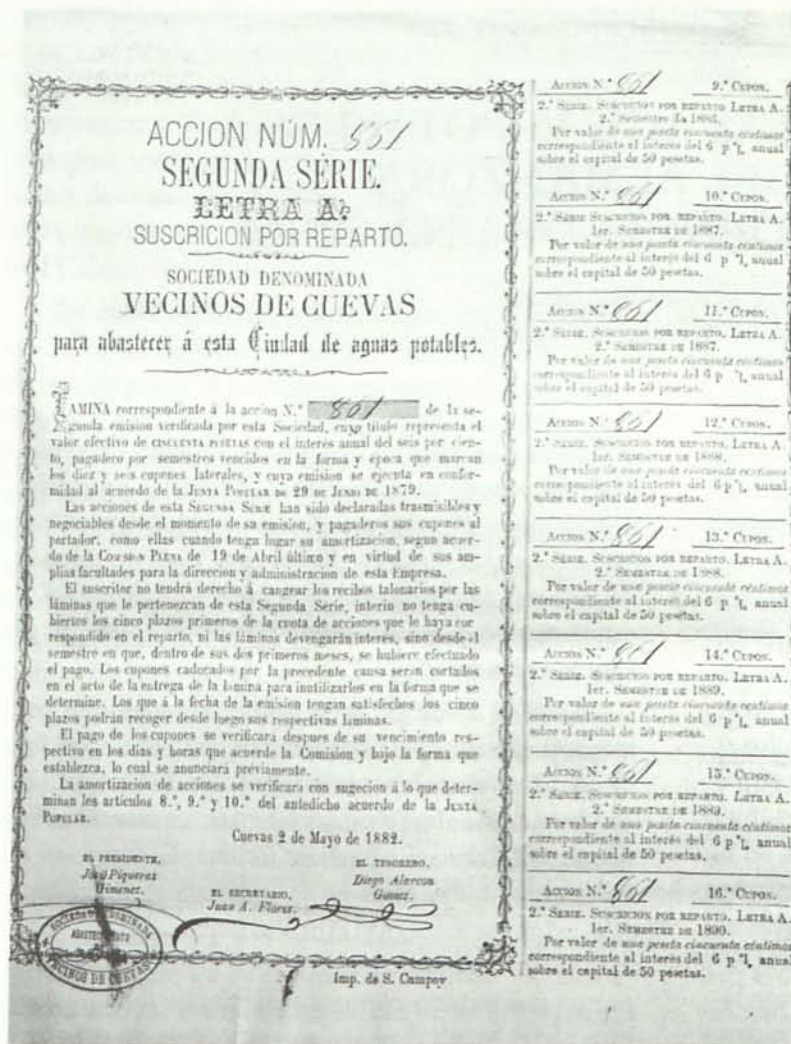 ACCION NÚM. 861
SEGUNDA SÉRIE.
LETRA A.
SUSCRICION POR REPARTO.
SOCIEDAD DENOMINADA
VECINOS DE CUEVAS
para abastecer á esta Ciudad de aguas potables.
LAMINA correspondiente á la accion N.° 861 de la se-
gunda emision verificada por esta Sociedad, cuyo título representa el
valor efectivo de CINCUENTA PESETAS con el interés anual del seis por cien-
to, pagadero por semestres vencidos en la forma y época que marcan
los diez y seis cupones laterales, y cuya emision se ejecuta en confor-
midad al acuerdo de la JUNTA POPULAR DE 29 DE JUNIO DE 1879.
Las acciones de esta SEGUNDA SÉRIE han sido declaradas trasmisibles y
negociables desde el momento de su emision, y pagaderos sus cupones al
portador, como ellas cuando tenga lugar su amortizacion, segun acuer-
do de la COMISION PLENA de 19 de Abril último y en virtud de sus am-
plias facultades para la direccion y administracion de esta Empresa.
El suscritor no tendrá derecho á cangear los recibos talonarios por las
láminas que le pertenezcan de esta Segunda Série, interin no tenga cu-
biertos los cinco plazos primeros de la cuota de acciones que le haya cor
respondido en el reparto, ni las láminas devengarán interés, sino desde el
semestre en que, dentro de sus dos primeros meses, se hubiere efectuado
el pago. Los cupones caducados por la precedente causa serán cortados
en el acto de la entrega de la lámina para inutilizarlos en la forma que se
determine. Los que á la fecha de la emision tengan satisfechos los cinco
plazos podrán recoger desde luego sus respectivas laminas.
El pago de los cupones se verificará despues de su vencimiento res-
pectivo en los dias y horas que acuerde la Comision y bajo la forma que
establezca, lo cual se anunciará préviamente.
La amortizacion de acciones se verificará con sugecion á lo que deter-
minan los artículos 8.°, 9.° y 10.° del antedicho acuerdo de la JUNTA
POPULAR.
Cuevas 2 de Mayo de 1882.
EL PRESIDENTE,
José Piqueras
Gimenez.
EL SECRETARIO,
Juan A. Flores.
EL TESORERO,
Diego Alarcon
Gomez.
SOCIEDAD DENOMINADA
VECINOS DE CUEVAS
Imp. de S. Campoy
Accion N.° 861 9.° CUPON.
2.ª SERIE. SUSCRICION POR REPARTO LETRA A.
2.° Semestre de 1886.
Por valor de una peseta cincuenta céntimos
correspondiente al interés del 6 p °/. anual
sobre el capital de 50 pesetas.
Accion N.° 861 10.° CUPON.
2.ª SERIE SUSCRICION POR REPARTO. LETRA A.
1er. SEMESTRE DE 1887.
Por valor de una peseta cincuenta céntimos
correspondiente al interés del 6 p °/. anual
sobre el capital de 50 pesetas.
Accion N.° 861 11.° CUPON.
2.ª SERIE. SUSCRICION POR REPARTO. LETRA A.
2.° SEMESTRE DE 1887.
Por valor de una peseta cincuenta céntimos
correspondiente al interés del 6 p °/. anual
sobre el capital de 50 pesetas.
Accion N.° 861 12.° CUPON.
2.ª SERIE. SUSCRICION POR REPARTO. LETRA A.
1er. SEMESTRE DE 1888.
Por valor de una peseta cincuenta céntimos
correspondiente al interés del 6 p °/. anual
sobre el capital de 50 pesetas.
Accion N.° 861 13.° CUPON.
2.ª SERIE. SUSCRICION POR REPARTO. LETRA A.
2.° SEMESTRE DE 1888.
Por valor de una peseta cincuenta céntimos
correspondiente al interés del 6 p °/. anual
sobre el capital de 50 pesetas.
Accion N.° 861 14.° CUPON.
2.ª SERIE. SUSCRICION POR REPARTO. LETRA A.
1er. SEMESTRE DE 1889.
Por valor de una peseta cincuenta céntimos
correspondiente al interés del 6 p °/. anual
sobre el capital de 50 pesetas.
Accion N.° 861 15.° CUPON.
2.ª SERIE. SUSCRICION POR REPARTO. LETRA A.
2.° SEMESTRE DE 1889.
Por valor de una peseta cincuenta céntimos
correspondiente al interés del 6 p °/. anual
sobre el capital de 50 pesetas.
Accion N.° 861 16.° CUPON.
2.ª SERIE. SUSCRICION POR REPARTO. LETRA A.
1er. SEMESTRE DE 1890.
Por valor de una peseta cincuenta céntimos
correspondiente al interés del 6 p °/. anual
sobre el capital de 50 pesetas.